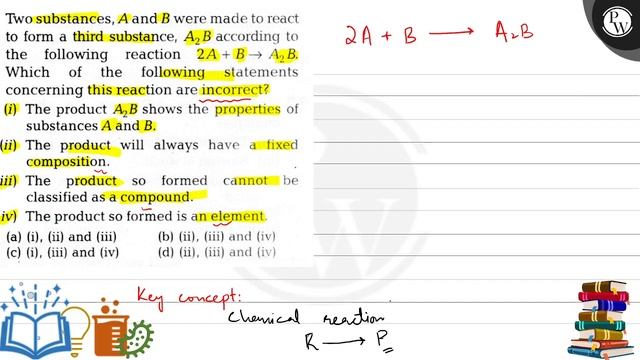 Two substances, A and B were made to react
to form a third substance, A₂B according to
the following reaction 2A + B → A₂B.
Which of the following statements
concerning this reaction are incorrect?
(i) The product A₂B shows the properties of
substances A and B.
(ii) The product will always have a fixed
composition.
iii) The product so formed cannot be
classified as a compound.
iv) The product so formed is an element.
(a) (i), (ii) and (iii) (b) (ii), (iii) and (iv)
(c) (i), (iii) and (iv) (d) (ii), (iii) and (iv)
2A + B ⟶ A₂B
PW
Key concept:
Chemical reaction
R ⟶ P